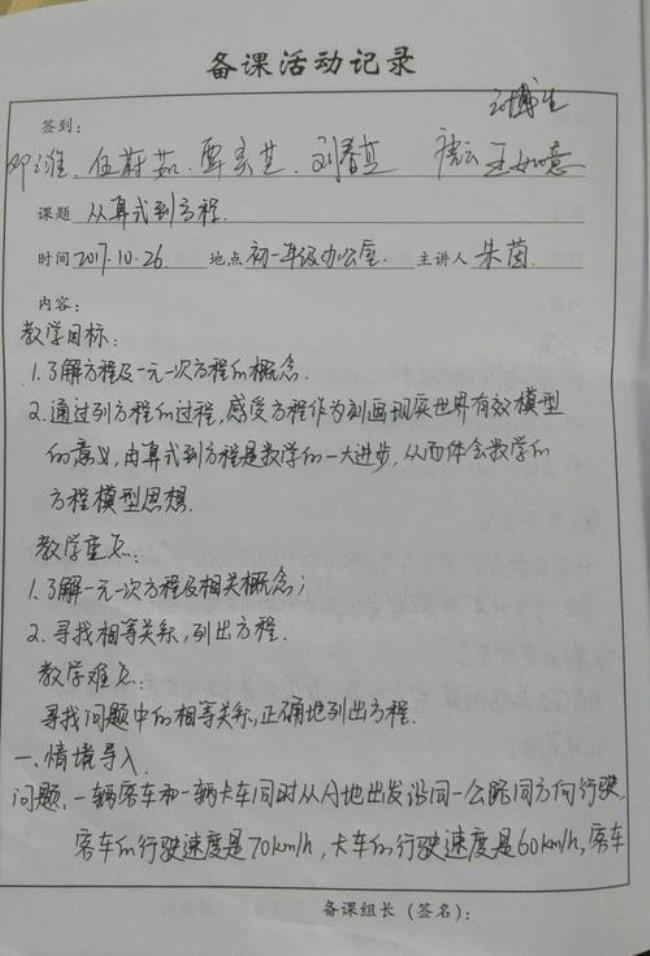 备课活动记录
签到：
伍蔚茹 覃 刘春兰 唐云 王如意
课题 从算式到方程.
时间 2017.10.26. 地点 初一年级办公室. 主讲人 朱茵.
内容：
教学目标：
1.了解方程及一元一次方程的概念.
2.通过列方程的过程,感受方程作为刻画现实世界有效模型
的意义,由算式到方程是数学的一大进步,从而体会数学的
方程模型思想.
教学重点：
1.了解一元一次方程及相关概念；
2.寻找相等关系,列出方程.
教学难点：
寻找问题中的相等关系,正确地列出方程.
一.情境导入.
问题.一辆客车和一辆卡车同时从A地出发沿同一公路同方向行驶,
客车的行驶速度是70km/h,卡车的行驶速度是60km/h,客车
备课组长（签名）：